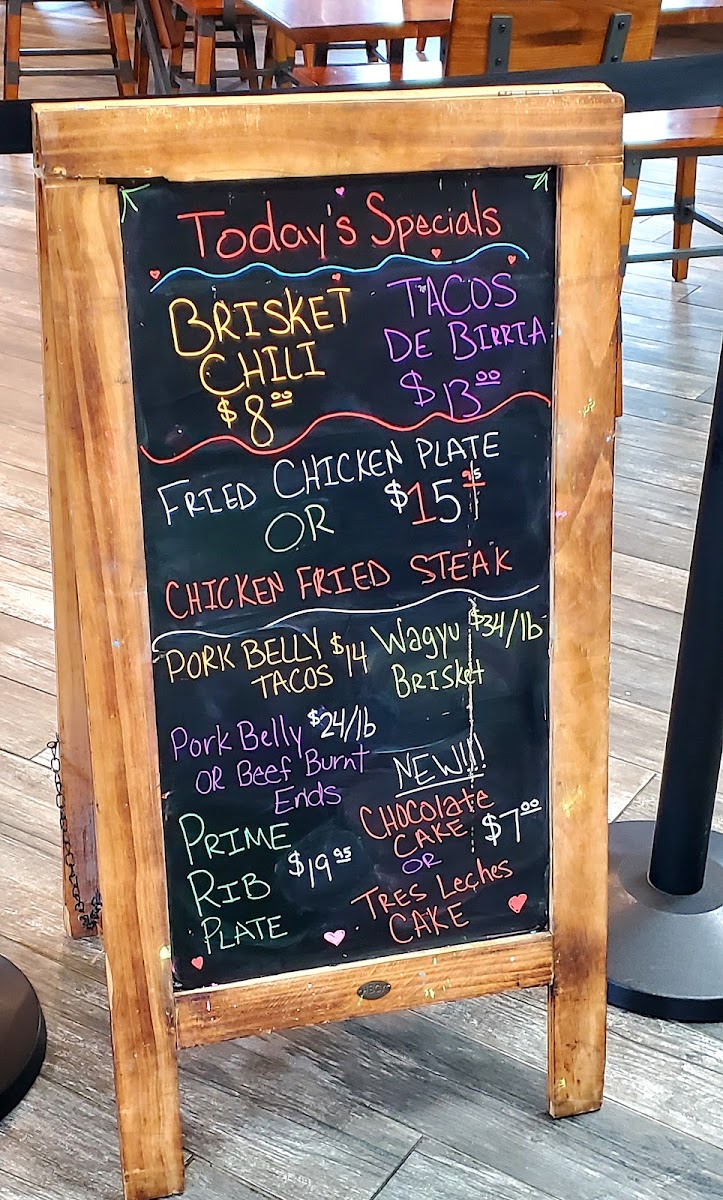 Today's Specials
BRISKET
CHILI
$8.00
TACOS
DE BIRRIA
$13.00
FRIED CHICKEN PLATE
OR
$15.95
CHICKEN FRIED STEAK
PORK BELLY
TACOS
$14
Wagyu
BRISket
$34/lb
Pork Belly
OR Beef Burnt
Ends
$24/lb
PRIME
RIB
PLATE
$19.95
NEW!!!
CHOColate
CAKE
OR
TRES Leches
CAKE
$7.00